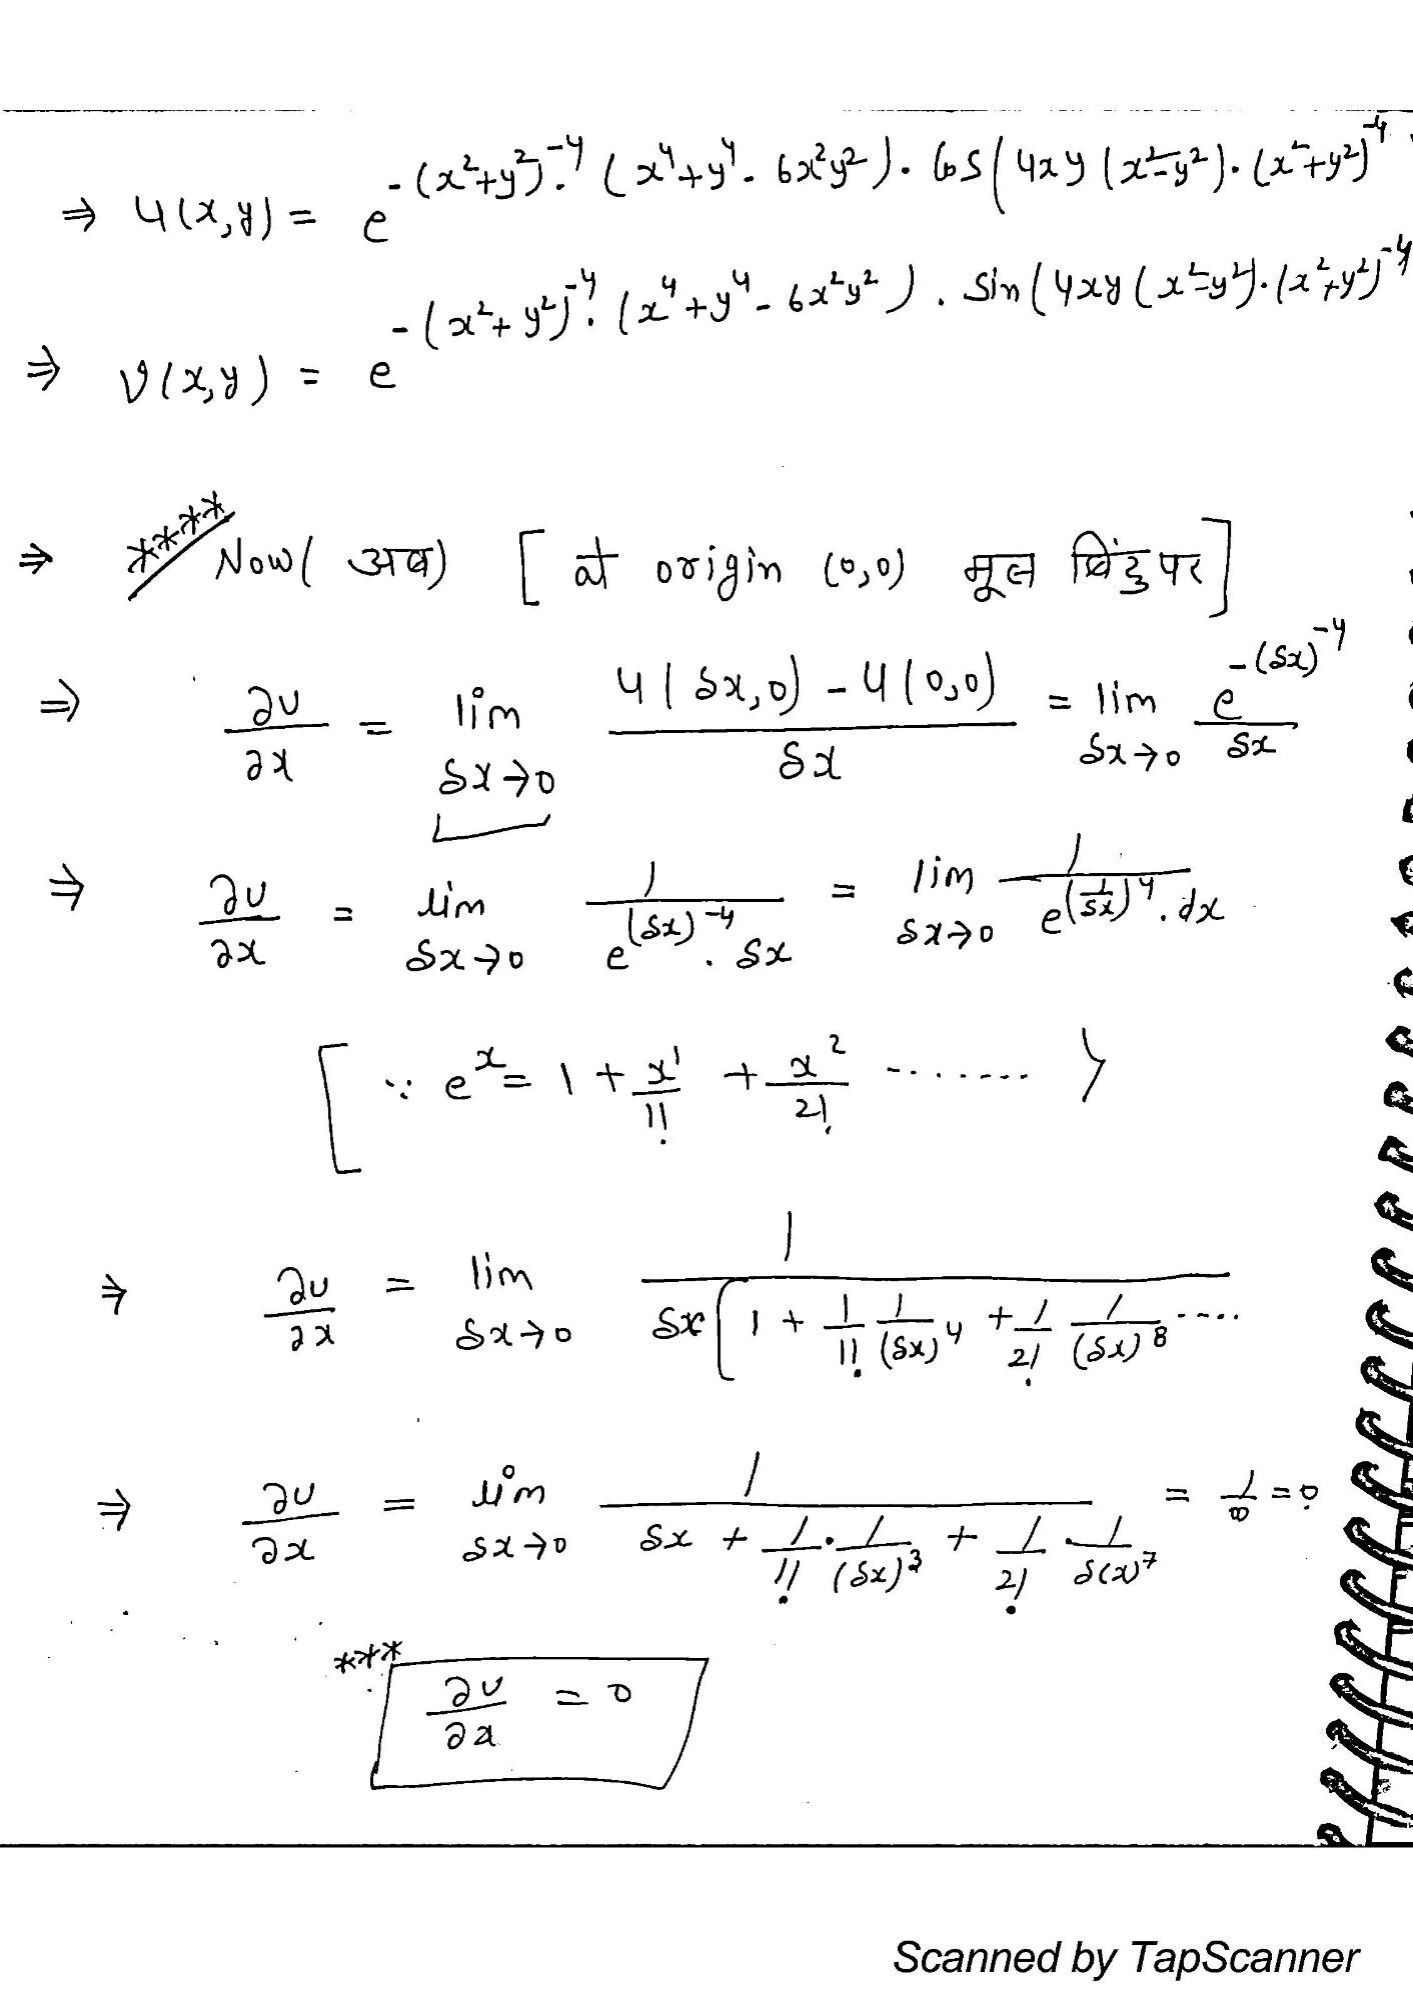 ⇒ u(x,y) = e^{-(x²+y²)^{-4}·(x⁴+y⁴-6x²y²)}·Cos(4xy(x²-y²)·(x²+y²)^{-4}
⇒ v(x,y) = e^{-(x²+y²)^{-4}·(x⁴+y⁴-6x²y²)}·Sin(4xy(x²-y²)·(x²+y²)^{-4}
⇒ **** Now( अब) [at origin (0,0) मूल बिंदु पर]
⇒ ∂u/∂x = lim_{δx→0} (u(δx,0) - u(0,0))/δx = lim_{δx→0} e^{-(δx)^{-4}}/δx
⇒ ∂u/∂x = lim_{δx→0} 1/(e^{(δx)^{-4}}·δx) = lim_{δx→0} 1/(e^{(1/δx)^4}·dx)
[∵ e^x = 1 + x¹/1! + x²/2! ........ }
⇒ ∂u/∂x = lim_{δx→0} 1/(δx[1 + 1/1! 1/(δx)⁴ + 1/2! 1/(δx)⁸ ....
⇒ ∂u/∂x = lim_{δx→0} 1/(δx + 1/1!·1/(δx)³ + 1/2!·1/δ(x)⁷) = 1/∞ = 0
*** ∂u/∂x = 0
Scanned by TapScanner